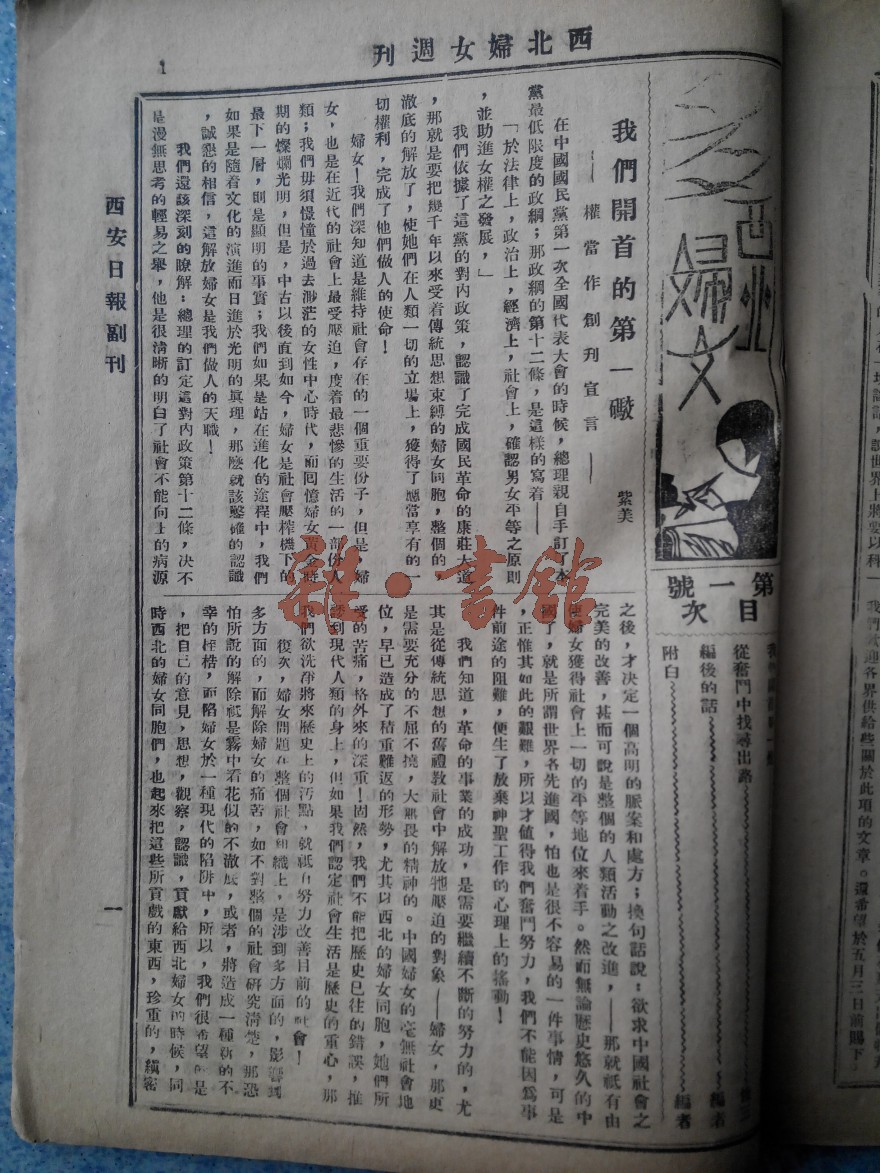 西北婦女週刊
1
西北婦女
第一號
目次
從奮鬥中找尋出路
編後的話 編者
附白 編者
我們開首的第一礮
——權當作創刊宣言——
紫美
在中國國民黨第一次全國代表大會的時候，總理親自手訂了本
黨最低限度的政綱；那政綱的第十二條，是這樣的寫着——
「於法律上，政治上，經濟上，社會上，確認男女平等之原則
，並助進女權之發展，」
我們依據了這黨的對內政策，認識了完成國民革命的康莊大道
，那就是要把幾千年以來受着傳統思想束縛的婦女同胞，整個的
澈底的解放了，使她們在人類一切的立場上，獲得了應當享有的一
切權利，完成了他們做人的使命！
婦女！我們深知道是維持社會存在的一個重要份子，但是，婦
女，也是在近代的社會上最受壓迫，度着最悲慘的生活的一部份人
類；我們毋須憬憧於過去渺茫的女性中心時代，而囘憶婦女黃金時
期的燦爛光明，但是，中古以後直到如今，婦女是社會壓榨機下的
最下一層，則是顯明的事實；我們如果是站在進化的途程中，我們
如果是隨着文化的演進而日進於光明的眞理，那麽就該鑿確的認識
，誠懇的相信，這解放婦女是我們做人的天職！
我們還該深刻的瞭解：總理的訂定這對內政策第十二條，决不
是漫無思考的輕易之舉，他是很清晰的明白了社會不能向上的病源
之後，才决定一個高明的脈案和處方；換句話說：欲求中國社會之
完美的改善，甚而可說是整個的人類活動之改進，——那就祇有由
使婦女獲得社會上一切的平等地位來着手。然而無論歷史悠久的中
國了，就是所謂世界各先進國，怕也是很不容易的一件事情，可是
，正惟其如此的艱難，所以才値得我們奮鬥努力，我們不能因爲事
件前途的阻難，便生了放棄神聖工作的心理上的搖動！
我們知道，革命的事業的成功，是需要繼續不斷的努力的，尤
其是從傳統思想的舊禮敎社會中解放牠壓迫的對象——婦女，那更
是需要充分的不屈不撓，大無畏的精神的。中國婦女的毫無社會地
位，早已造成了積重難返的形勢，尤其以西北的婦女同胞，她們所
受的苦痛，格外來的深重！固然，我們不能把歷史已往的錯誤，推
諉到現代人類的身上，但如果我們認定社會生活是歷史的重心，那
我們欲洗淨將來歷史上的汚點，就祇有努力改善目前的社會！
復次，婦女問題在整個社會組織上，是涉到多方面的，影響到
多方面的，而解除婦女的痛苦，如不對整個的社會研究清楚，那恐
怕所說的解除祇是霧中看花似的不澈底，或者，將造成一種新的不
幸的桎梏，而陷婦女於一種現代的陷阱中，所以，我們很希望的是
，把自己的意見，思想，觀察，認識，貢獻給西北婦女的時候，同
時西北的婦女同胞們，也起來把這些所貢獻的東西，珍重的，縝密
西安日報副刊
一
雜·書館
我們歡迎各界供給些關於此項的文章。還希望於五月三日前賜下。